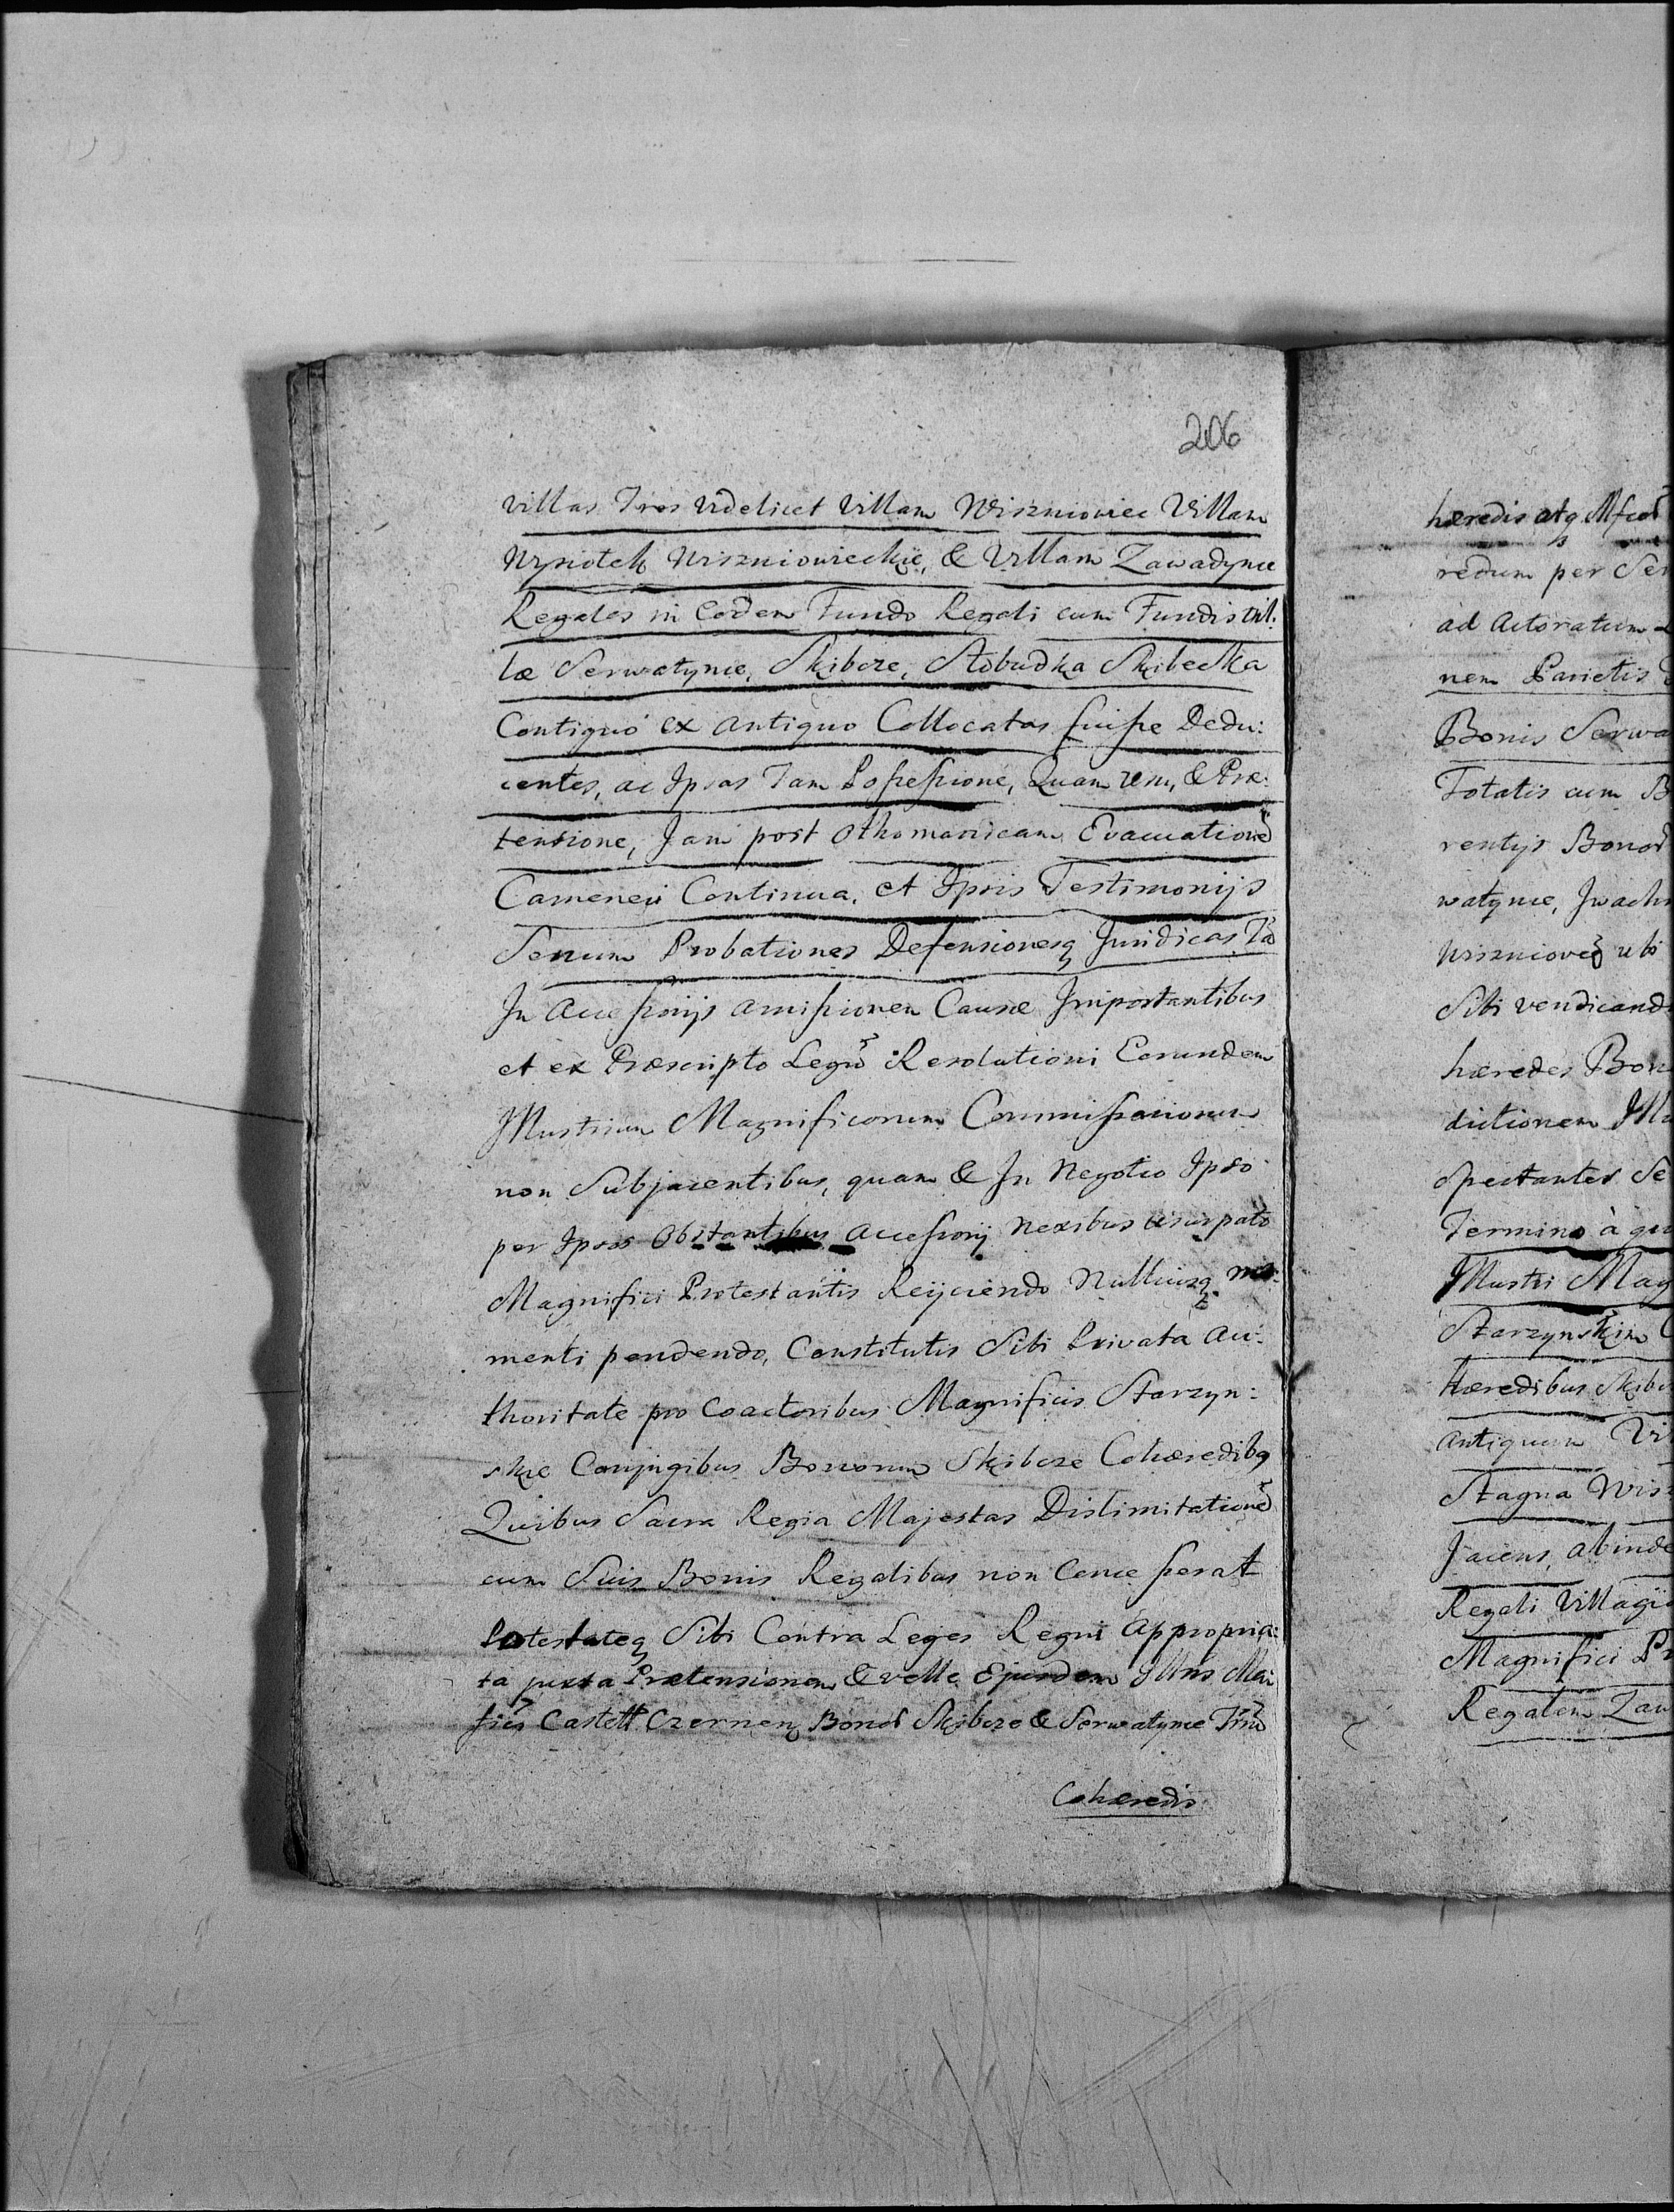 206
Villas Tres videlicet Villam Wiszniowiec Villam
Wysiolek Wiszniowieckie, & Villam Zawadynce
Regales in Eodem Fundo Regali cum Fundis Vil:
læ Serwatynce, Skibcze, Słobudka Skibecka
Contiguô ex antiquo Collocatas fuisse Dedu:
centes, ac Ipsas Tam Possessione, Quam usu, & Præ:
tensione, Jam post Othomanicam Evacuatione
Cameneci Continua, et Ipsis Testimonijs
Senum Probationes Defensionesq Juridicas Tã
In Accessorijs amissionem Causæ Importantibus
et ex Præscripto Legũ Resolutioni Eorundem
Illustrium Magnificorum Commissariorum
non Subjacentibus, quam & In Negotio Ipso
per Ipsos Obstantibus Accessorij Nexibus usurpato
Magnifici Protestantis Reijciendo Nulliusq mo:
menti pendendo, Constitutis Sibi Privata Au:
thoritate pro Coactoribus Magnificis Starzyn:
skie Conjugibus Bonorum Skibcze Cohæredibq
Quibus Sacra Regia Majestas Dislimitatione
cum Suis Bonis Regalibus non Concesserat
Potestateq Sibi Contra Leges Regni Appropria:
ta juxta Prætensionem & velle Ejusdem Illris Ma:
fici Castell Czernen Bonor Skibcze & Serwatynce
Cohæredis
hæredis atq Mfcor
redum per Ser
ad Actoratum
nem Parietis
Bonis Serwa
Totalis cum B
rentijs Bonor
watynce, Iwach
Wiszniove ubi
Sibi vendicand
hæredes Bon
dictionem Illu
Spectantes Se
Termino à qu
Illustri Mag
Starzynskim C
hæredibus Skibc
Antiquum Vi
Stagna Wis
Jacens, abinde
Regali Villagi
Magnifici Pr
Regalem Zaw